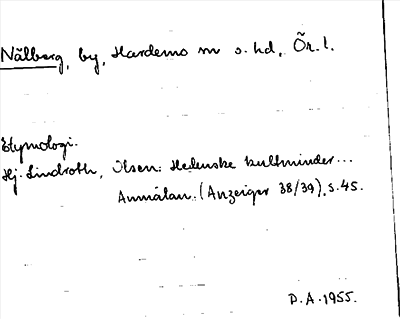 Nälberg, by, Hardemo sn o. hd, Ör. l.
Etymologi.
Hj. Lindroth, Olsen: Hedenske kultminder...
Anmälan. (Anzeiger 38/39), s. 45.
P.A. 1955.